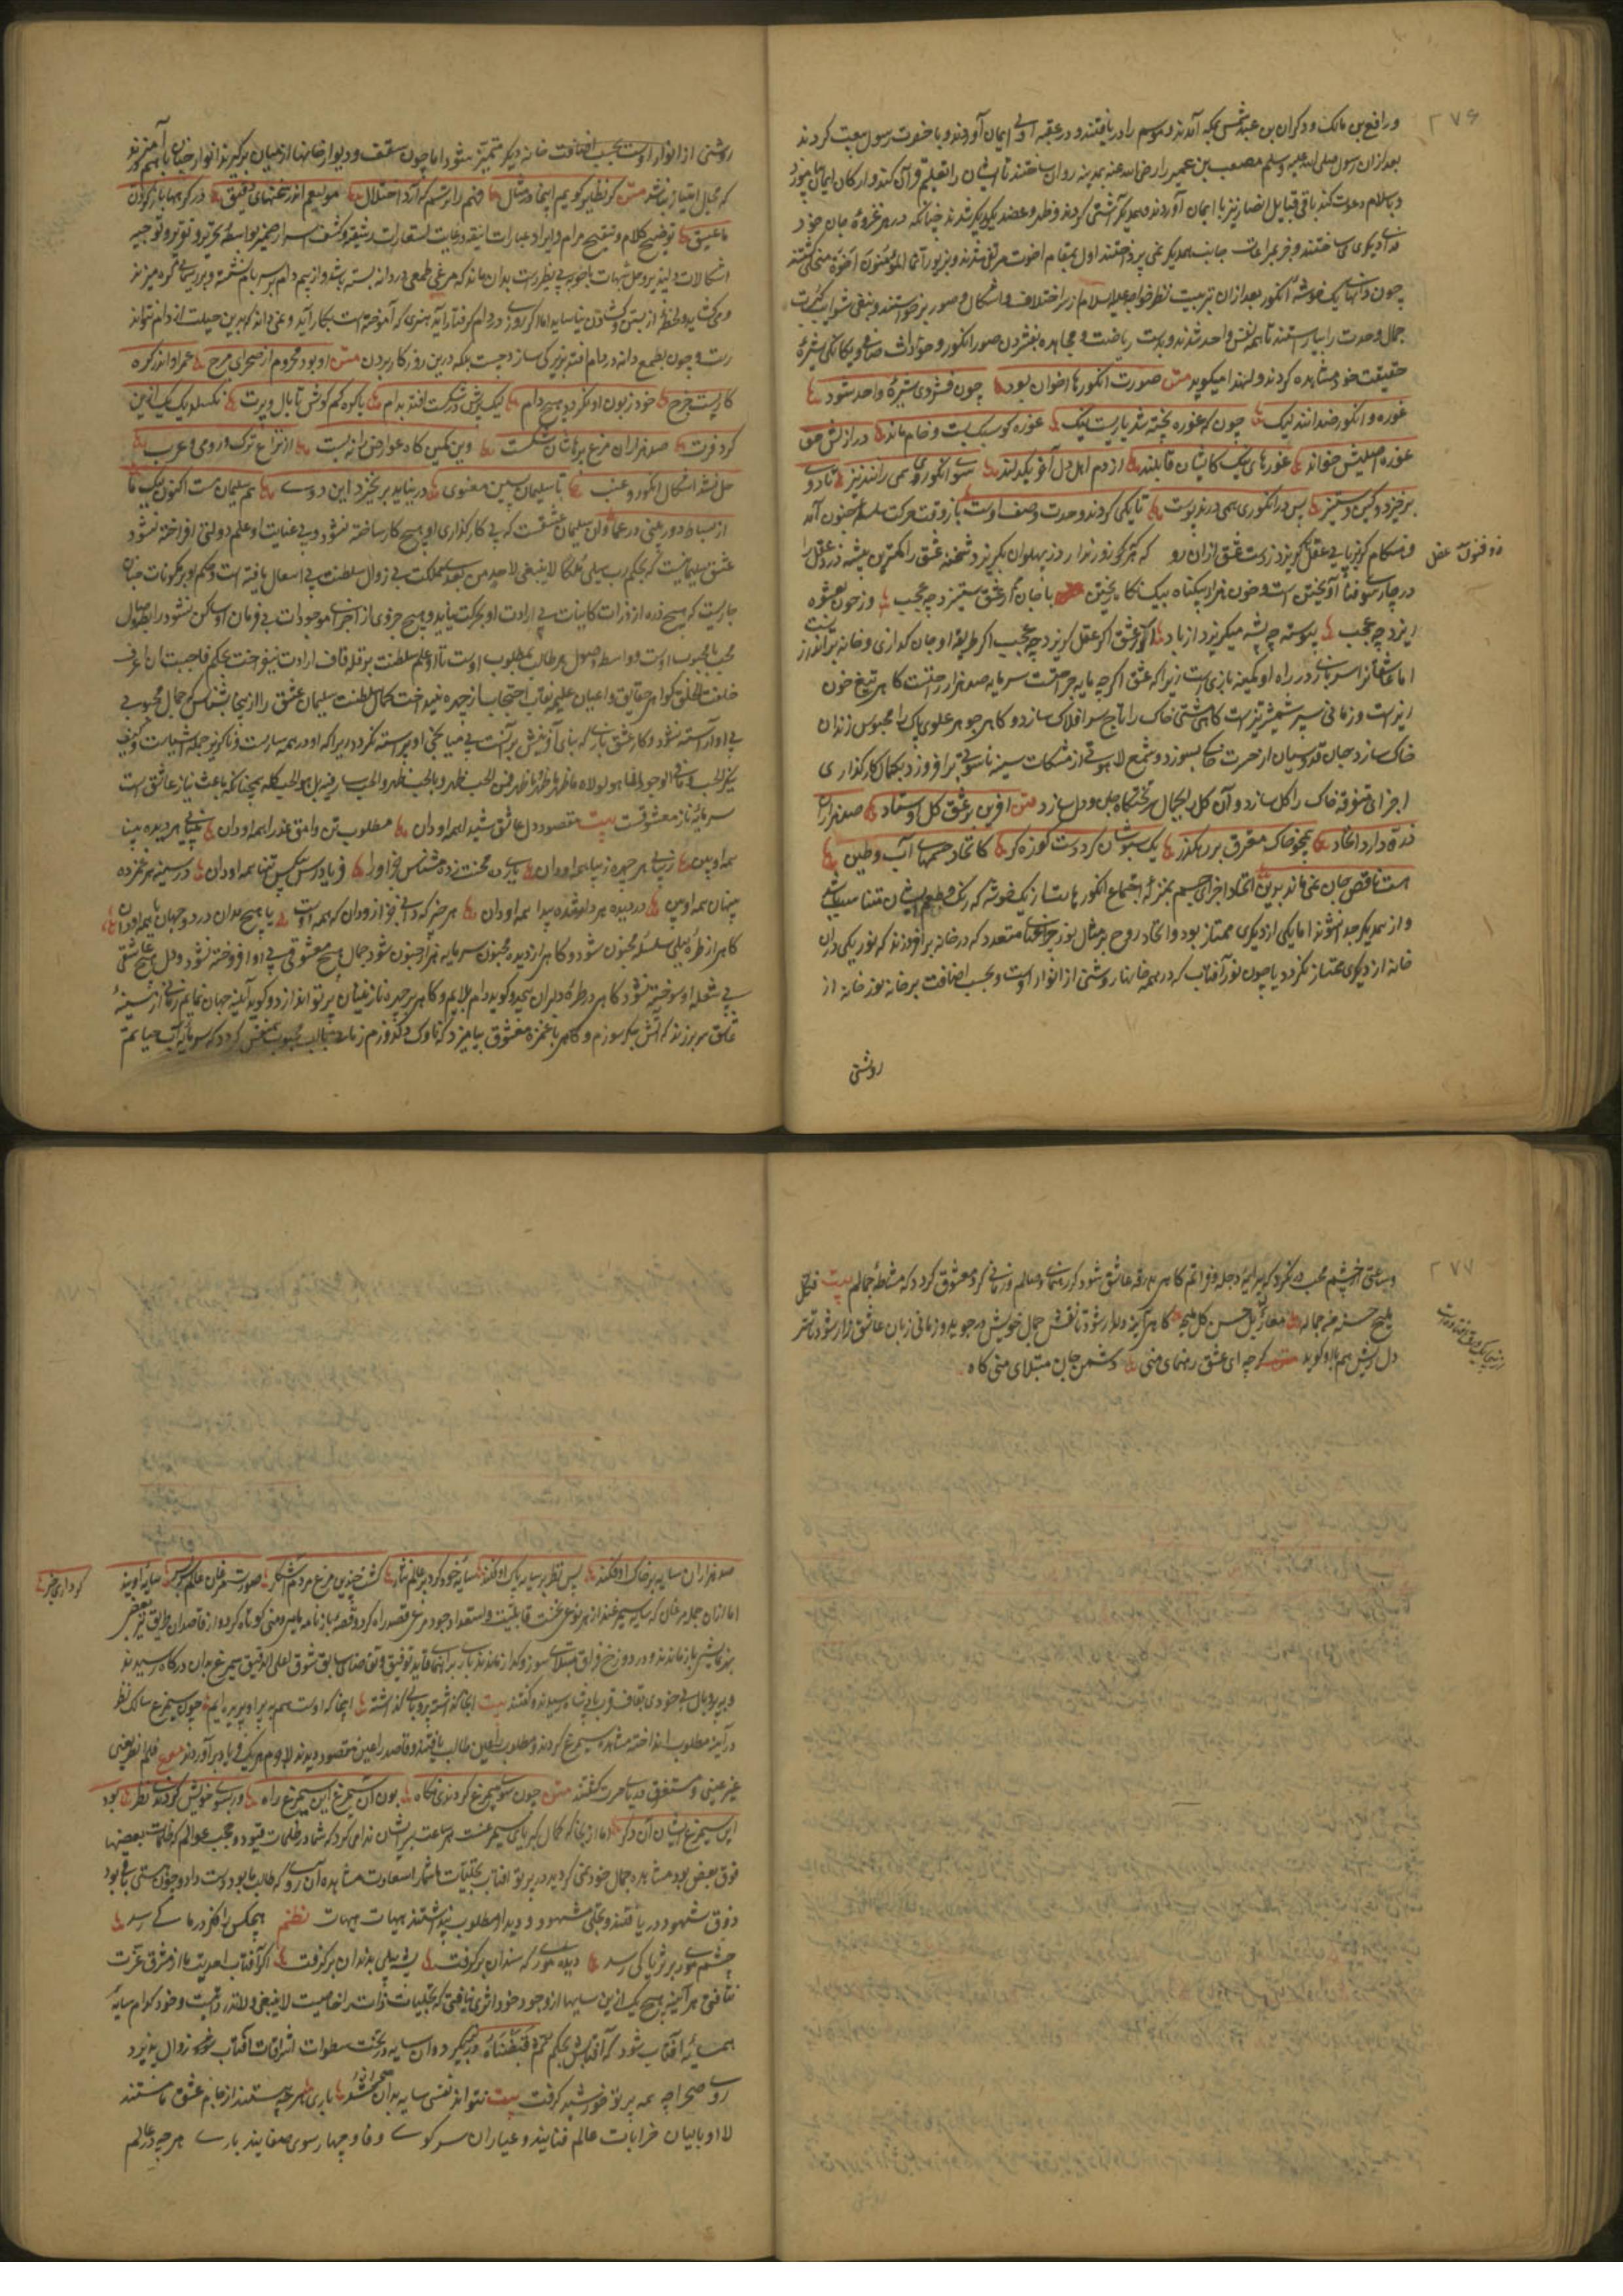 ۲۷۶
و رافع بن مالک و ذکوان بن عبد شمس بمکه آمدند و موسم را دریافتند و در عقبه اولی ایمان آوردند و با حضرت رسول بیعت کردند
بعد ازان رسول صلی الله علیه وسلم مصعب بن عمیر را رضی الله عنه بمدینه روان ساختند تا ایشان را تعلیم قرآن کند و ارکان ایمان
و باسلام دعوت کند باقی قبایل انصار نیز با ایمان آوردند و بیکدیگر آشتی کردند و ظهر و عضد یکدیگر شدند چنانکه در هر غزوه جان خود
فدای دیگری می ساختند و جز بمراعات جانب همدیگر نمی پرداختند اول بمقام اخوت مترقی شدند و بزیور انما المؤمنون اخوة متحلی گشتند
چون دانهای یک خوشه انگور بعد ازان تربیت نظر خواجه علیه السلام از سر اختلاف اشکال و صور برخواستند و بنفی شوایب کثرت
جمال وحدت را بیاراستند تا همه نفس واحد شدند و بدست ریاضت و مجاهده بفشردن صور انگور و حوادث صاف و یکانگی شیرهٔ
حقیقت خود مشاهده کردند و لهذا میگوید متن صورت انگورها اخوان بود چون فشردی شیرهٔ واحد شود
غوره و انگور ضدانند لیک چون که غوره پخته شد یاریست نیک غوره کو سنگ بست و خام ماند در ازل حق
غوره اصلیش خواند غورهای نیک کایشان قابلند از دم اهل دل آخر یکدلند سوی انگوری همی رانند تیز تا دوی
برخیزد و کین و ستیز پس در انگوری همی درند پوست تا یکی گردند وحدت وصف اوست باز وقت حرکت سلسلهٔ جنون آمد
ذو فنون عقل
و هنگام گریز پای عقل گریزد ز دست عشق ازان رو که گر زور ندارد ز پهلوان بگریزد شحنه عشق را کمترین پیشه دزد عقل را
در چارسوی فنا آویختن است و خون هزار بیگناه بیک نگاه ریختن با جان گر عشق ستیزد چه عجب وز خون عشوه
ریزد چه عجب پیوسته چو پشه میگریزد از باد از عشق اگر عقل گریزد چه عجب اگر طریقهٔ او جان گدازی و خانه براندازیست
اما عشاق را سربازی در راه او کمینه بازی است زیرا که عشق اگر چه مایه جراحتست سرمایه صد هزار راحتست گاهی تیغ خون
ریزست و زمانی سپر شمشیر تیزست گاهی مشتی خاک را تاج سر افلاک سازد و گاهی جوهر علوی پاک را محبوس زندان
خاک سازد جان قدوسیان از حسرت خاک بسوزد و شمع لاهوتی از مشکات سینه ناسوتی برافروزد بکمال کارگذاری
اجزای متفرقه خاک را کل سازد و آن کل را بجمال بر تختگاه جان و دل سازد متن آفرین بر عشق کل اوستاد صد هزاران
ذره را داد اتحاد همچو خاک مفترق در رهگذر یک سبوشان کرد دست کوزه گر کاتحاد جسمهای آب و طین
است ناقص جان نمی ماند بدین اتحاد اجزای جسم بمنزلهٔ اجتماع انگورهاست از یک خوشه که رنگ و طعم ایشان متناسب باشد
و از همدیگر جدا نشوند اما یکی از دیگری ممتاز بود و اتحاد روح بر مثال نور چراغهای متعدد که در خانه برافروزند که نور یکی دران
خانه از دیگری ممتاز نگردد یا چون نور آفتاب که در همه خانها روشنی از انوار اوست و بحسب اضافت بر خانه نور خانه از
روشنی
روشنی از انوار اوست بحسب اضافت خانه دیگر متمیز شود اما چون سقف و دیوار خانها از میان برگیرند انوار چنان باهم آمیزند
که مجال امتیاز نباشد متن گر نظایر گویم اینجا و مثال فهم را ترسم که آرد اختلال مولعیم اندر سخنهای دقیق در گرهها باز کردن
ما عشیق توضیح کلام و تنقیح مرام و ایراد عبارات انیقه و غایت استعارات رشیقه و کشف اسرار ضمیر بواسطهٔ تحریر و تقریر و توجیه
اشکالات دلپذیر و حل شبهات باجوبه بی نظیر است بدان ماند که مرغی طمعی در دانه بسته باشد و از بیم دام بر سر بام نشسته و بر ریسمانی گره میزند
و می کشاید و لحظهٔ از بستن و کشادن نیاساید اما اگر روزی در دام گرفتار آید هنری که آموخته است بکار آید و نمی داند که بدین حیلت از دام نتواند
رست و چون بطمع دانه در دام افتد بزیرکی سازد جست بلکه درین روزگار بردن متن او بود محروم از صحرای مرج عمر او اندر گره
کاریست خرج خود زبون او نگردد هیچ دام لیک پرش در شکست افتد بدام با گره کم کوش تا بال و پرت نکسلد یک یک ازین
کرو فرت صد هزاران مرغ پرهاشان شکست وین کمین گاه عوارض را نه بست از نزاع ترک و رومی و عرب
حل نشد اشکال انگور و عنب تا سلیمان لسین معنوی در نیاید بر نخیزد این دوی هم سلیمان هست اکنون لیک ما
از نشاط دوربینی در عما و ان سلیمان عشقست که بی کارگذاری او هیچ کار ساخته نشود و بی عنایت او علم دولتی افراخته نشود
عشق سلیمانیست که بحکم رب هب لی ملکا لا ینبغی لاحد من بعدی مملکت بی زوال سلطنت بی انتقال یافته است و حکم او بر مکونات چنان
جاریست که هیچ ذره از ذرات کاینات بی ارادت او بحرکت نیاید و هیچ جزوی از اجزای موجودات بی فرمان او ساکن نشود رابطه وصال
محب با محبوب اوست و واسطه وصول هر طالب بمطلوب اوست تا او علم سلطنت بر قله قاف ارادت نیفراخت بحکم فاحببت ان اعرف
خلقت الخلق گوهر حقایق و اعیان علمیه نقاب احتجاب از چهره نینداخت کمال سلطنت سلیمان عشق را از اینجا بشناس که جمال محبوبی
بی او آراسته نشود و کار عشق بازی که بنای آفرینش بر آنست بی میانجی او پیراسته نگردد زیرا که او در همه ساریست و ناگزیر جمله اشیاست و کیف
ینکر الحب و ما فی الوجود الا هو لولاه ما ظهر ما ظهر فمن الحب ظهر و بالحب ظهر و الحب سار فیه بل هو الحب کله همچنانکه باعث نیاز عاشق است
سرمایهٔ ناز معشوقست بیت مقصود دل عاشق شیدا همه او دان مطلوب تن وامق عذرا همه او دان بینایی هر دیده بینا
همه او بین زیبایی هر چهرهٔ زیبا همه او دان یاری ده محنت زده مشناس جز او را فریادرس بیکس تنها همه او دان در سینه هر غمزده
پنهان همه او بین در دیده هر دلشده پیدا همه او دان هر چیز که دانی جز ازو دان که همه اوست یا هیچ مدان در دو جهان یا همه او دان
گاهی از طرهٔ لیلی سلسلهٔ مجنون شود و گاهی از دیده مجنون سرمایه هزار جنون شود جمال هیچ معشوقی بی او افروخته نشود و دل هیچ عاشقی
بی شعله او سوخته نشود گاهی در طرهٔ دلبران پیچد و گوید دام بلایم و گاهی بر چهره نازنینان پرتو اندازد و گوید آینه جهان نمایم زمانی از سینهٔ
عاشق سر برزند که آتش جگر سوزم و گاهی با غمزه معشوق بیامیزد که ناوک دلدوزم زمانی بالب محبوب همنفس گردد که سرمایه آب حیاتم
۲۷۷
و ساعتی از چشم محب در نگرد که پیرایهٔ دجله و فراتم گاهی بدرقه عاشق شود که رهنمای وصالم و زمانی گرد معشوق گردد که مشاطهٔ جمالم بیت فکل
ملیح حسنه من جماله معار له بل حسن کل ملیحة گاهی آینه دلدار شود تا نقش جمال خویش درو جوید و زمانی زبان عاشق زار شود تا سر
دل ریش هم با او گوید گرچه ای عشق رهنمای منی دشمن جان مبتلای منی گاه
صد هزاران سایه بر خاک او فکند پس نظر بر سایه پاک او فکند سایه خود کرد بر عالم نثار گشت چندین مرغ هر دم آشکار صورت مرغان عالم سربسر سایه اویند
گر داری خبر
اما ازان جمله مرغان که سایه سیمرغند از هر نوعی بحسب قابلیت و استعداد وجود مرغی قصد راه کرد و قصه نیازنامه مایی و منی کوتاه کرد و از قاصدان طریق نیز بعضی
بدرقایش باز ماندند و در دوزخ فراق مبتلای سوز و گداز ماندند باری براهنمایی قاید توفیق و تقاضای سایق شوق اعلی الرفیق سیمرغ بدان درگاه رسیدند
و بی پر و بال بی خودی بقاف قرب پادشاه رسیدند و گفتند بیت اینجا که گذاشته پر و بی گذاشته اینجا که اوست هم بپر او پریده ایم چون سیمرغ سالک نظر
در آینه مطلوب انداختند مشاهده سیمرغ کردند و مطلوب را عین طالب یافتند و قاصد را عین مقصود دیدند لاجرم هر یک فریاد برآوردند مصرع فلم انظر بعینی
غیر عینی و مستغرق دریای حیرت گشتند متن چون سوی سیمرغ کردندی نگاه بود آن سیمرغ این سیمرغ راه ور بسوی خویش کردندی نظر بود
این سیمرغ ایشان آن دگر اما از بارگاه کمال کبریای سیمرغست هر ساعت بر ایشان ندا می کرد که شما در ظلمات قیود و حجب عوالم که ظلمات بعضها
فوق بعض بود مشاهده جمال خود نمی کردید در پرتو آفتاب تجلیات ما شما را سعادت مشاهده آن روی که طالب ما بود دست داد و چون هستی باقی بود
ذوق شهود دریافتند و تجلی شهود و دیدار مطلوب پنداشتند هیهات هیهات نظم هیچکس را کی درما کی رسد
چشم موری بر ثریا کی رسد دیده موری که سندان برگرفت پشه پیلی بدندان برگرفت اگر آفتاب احدیت ما از مشرق عزت
نتافتی هر آینه هیچ یک ازین سایها از وجود خود اثری نیافتی که تجلیات ذات را خاصیت لا تبقی و لا تذر واقعست و خود کدام سایه
همسایهٔ آفتاب شود که آفتابش بحکم ثم قبضناه در نگیرد و آن سایه در تحت سطوات اشراقات آفتاب زوال پذیرد
روی صحرا چو همه پرتو خورشید گرفت بیت نتواند نفسی سایه بدان صحرا شد باری هرچه هستند از جام عشق ما مستند
لا اوبالیان خرابات عالم فنایند و عیاران سر کوی وفا و چهارسوی صفایند باری هرچه در عالم